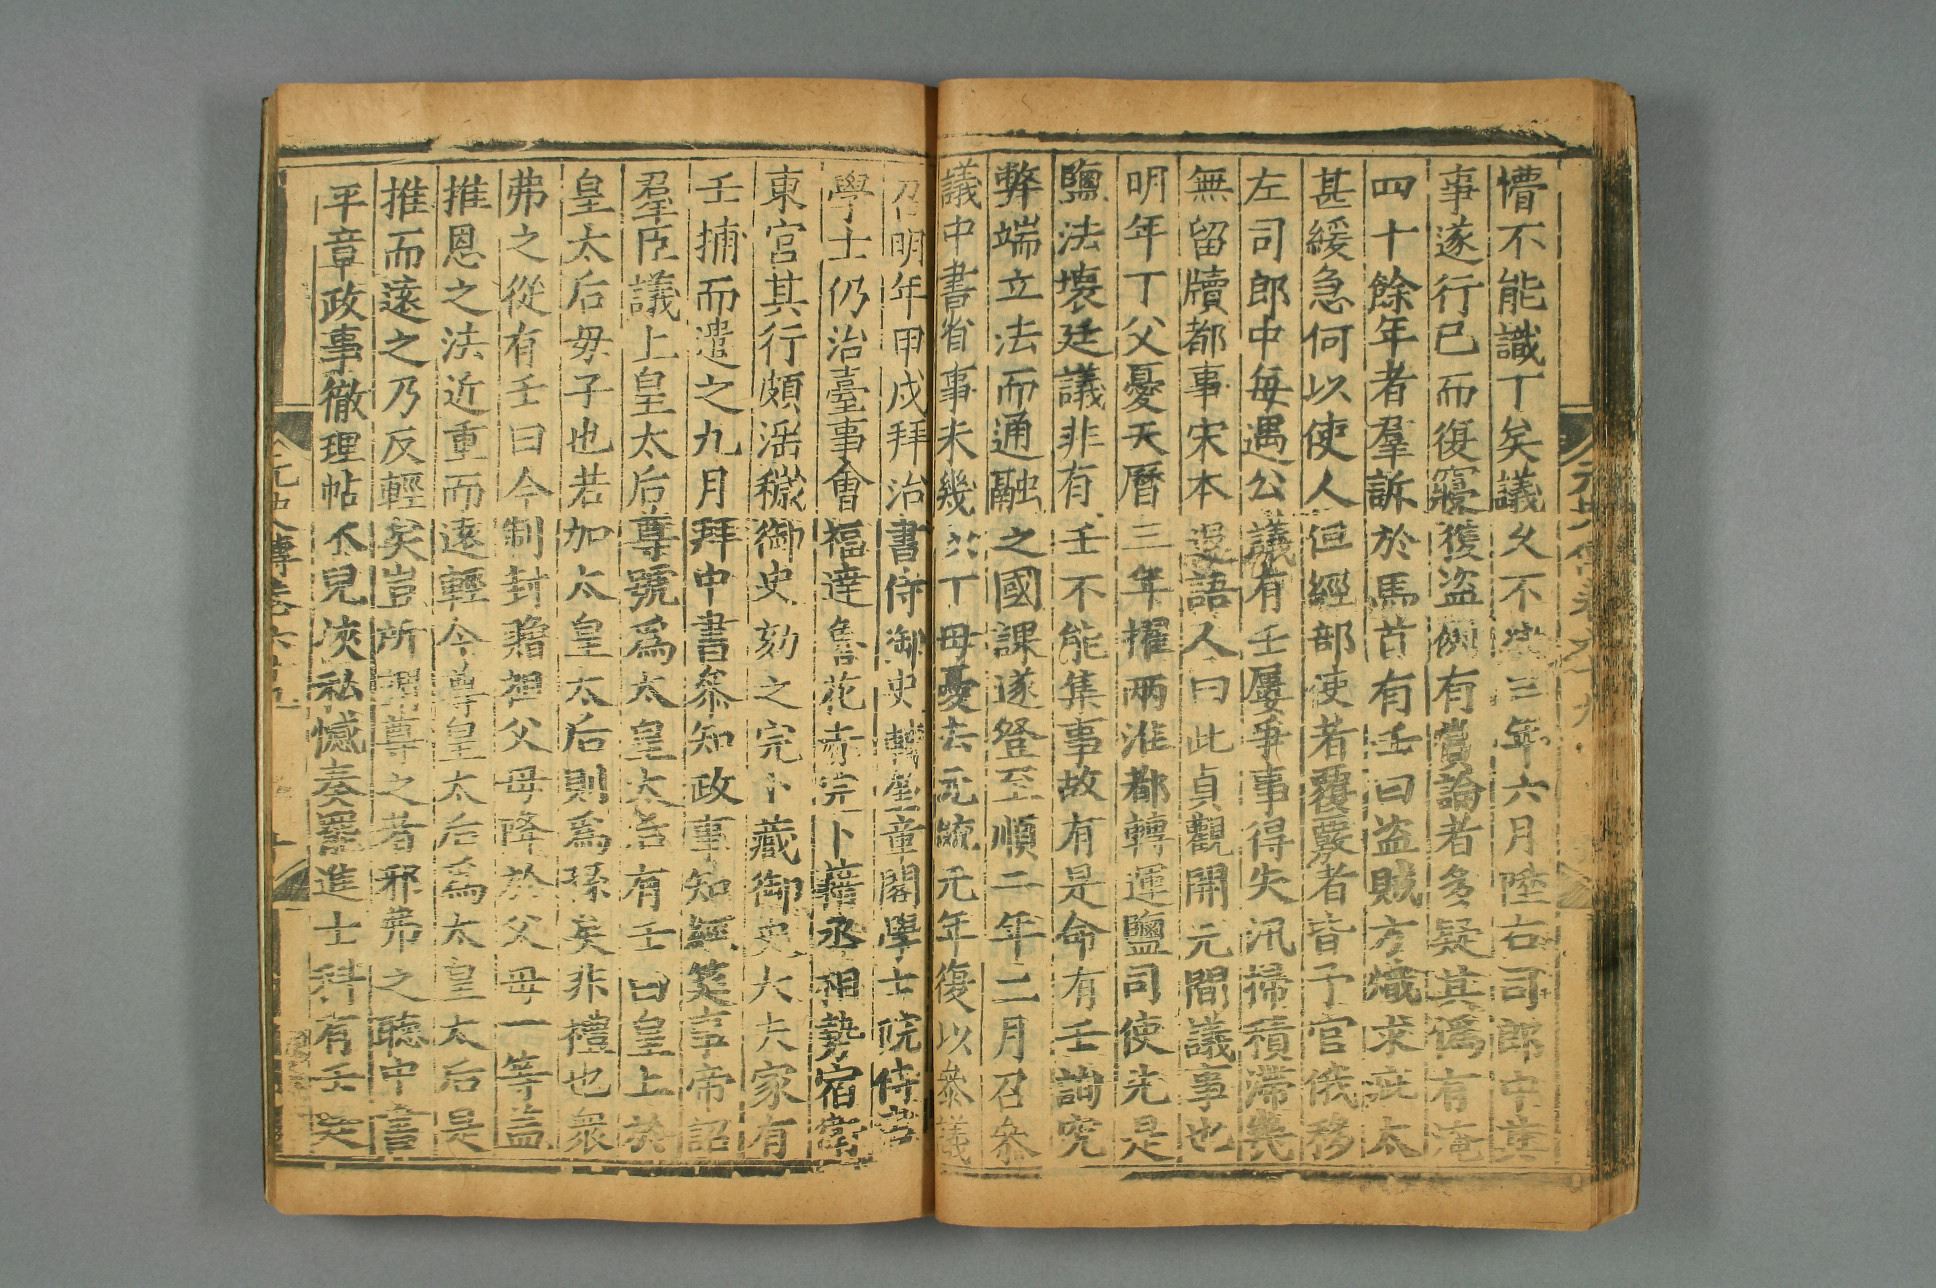 懵不能識丁矣議久不決三年六月陞右司郎中其
事遂行已而復寢獲盜例有賞論者多疑其僞有淹
四十餘年者羣訴於馬首有壬曰盜賊方熾求疵太
甚緩急何以使人但經部使者覆覈者皆予官俄移
左司郎中每遇公議有壬屢爭事得失汛掃積滯幾
無留牘都事宋本退語人曰此貞觀開元間議事也
明年丁父憂天曆三年擢兩淮都轉運鹽司使先是
鹽法壞廷議非有壬不能集事故有是命有壬詢究
弊端立法而通融之國課遂登至順二年二月召參
議中書省事未幾以丁母憂去元統元年復以參議
召明年甲戌拜治書侍御史轉奎章閣學士院侍書
學士仍治臺事會福達魯花赤完卜藉丞相勢宿衛
東宮其行頗淫穢御史劾之完卜藏御史大夫家有
壬捕而遣之九月拜中書參知政事知經筵事帝詔
羣臣議上皇太后尊號爲太皇太后有壬曰皇上於
皇太后母子也若加太皇太后則爲孫矣非禮也衆
弗之從有壬曰今制封贈祖父母降於父母一等蓋
推恩之法近重而遠輕今尊皇太后爲太皇太后是
推而遠之乃反輕矣豈所謂尊之者邪弗之聽中書
平章政事徹理帖木兒挾私憾奏罷進士科有壬爭
元史列傳卷六十九